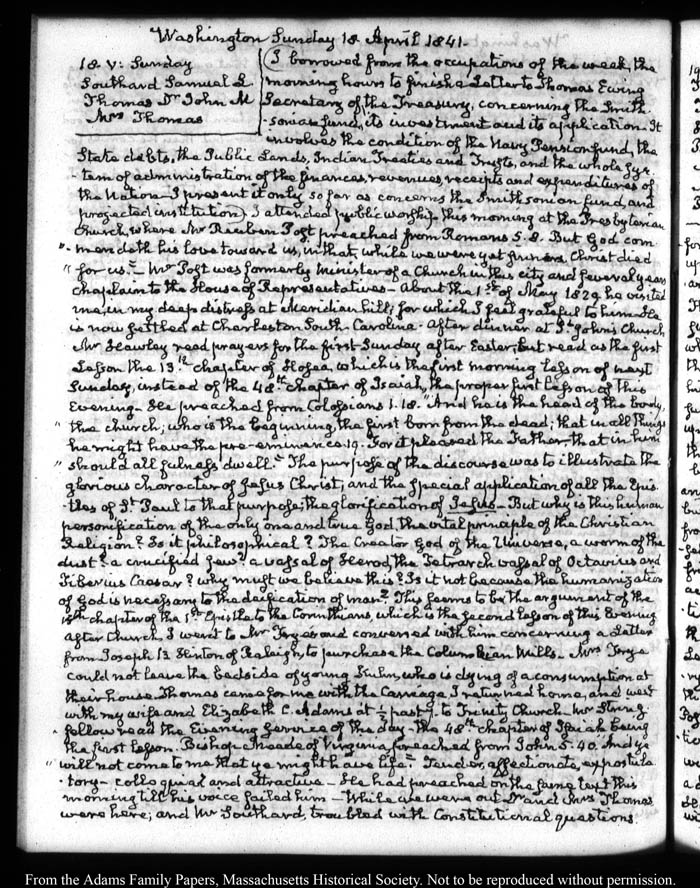 Washington Sunday 18. April 1841.
18. V: Sunday
Southard Samuel L
Thomas Dr John M
Mrs Thomas
I borrowed from the occupations of the week, the
morning hours to finish a Letter to Thomas Ewing
Secretary of the Treasury, concerning the Smith-
-sonian fund, its investment and its application. It
involves the condition of the Navy Pension fund, the
State debts, the Public Lands, Indian Treaties and Trusts, and the whole Sys-
-tem of administration of the finances, revenues, receipts and expenditures of
the Nation. I present it only so far as concerns the Smithsonian fund, and
projected institution. I attended public worship, this morning at the Presbyterian
Church, where Mr Reuben Post preached from Romans 5.8. But God com-
"-mendeth his love toward us, in that, while we were yet sinners Christ died
"for us." Mr Post was formerly Minister of a Church in this city and several years
chaplain to the House of Representatives. About the 1st of May 1829 he visited
me, in my deep distress at Meridian hill; for which I feel grateful to him. He
is now settled at Charleston South Carolina. After dinner at St John's Church,
Mr Hawley read prayers for the first Sunday after Easter; but read as the first
Lesson the 13th chapter of Hosea, which is the first morning lesson of next
Sunday, instead of the 48th chapter of Isaiah, the proper first Lesson of this
Evening. He preached from Colossians 1.18. "And he is the head of the body,
"the church; who is the beginning, the first born from the dead; that in all things
he might have the pre-eminence. 19. For it pleased the Father that in him
"should all fulness dwell." The purpose of the discourse was to illustrate the
glorious character of Jesus Christ; and the special application of all the Epis-
-tles of St. Paul to that purpose; the glorification of Jesus - But why is this human
personification of the only one and true God, the vital principle of the Christian
Religion? Is it philosophical? The Creator God of the Universe, a worm of the
dust? a crucified Jew? a vassal of Herod, the Tetrarch vassal of Octavius and
Tiberius Caesar? why must we believe this? Is it not because the humanization
of God is necessary to the deification of man? This seems to be the argument of the
15th chapter of the 1st Epistle to the Corinthians, which is the second lesson of this Evening
After Church I went to Mr Frye's and conversed with him concerning a Letter
from Joseph B. Hinton of Raleigh, to purchase the Columbian Mills. Mrs Frye
could not leave the bedside of young Kuhn, who is dying of a consumption at
their house. Thomas came for me with the Carriage I returned home, and went
with my wife and Elizabeth C. Adams at ½ past 7. to Trinity Church. Mr String-
fellow read the Evening Service of the day - the 48th chapter of Isaiah being
the first lesson. Bishop Meade of Virginia, preached from John 5.40. And ye
"will not come to me that ye might have life." Tender, affectionate, expostula-
-tory - colloquial and attractive - He had preached on the same text this
morning till his voice failed him - While we were out Dr and Mrs Thomas
were here; and Mr Southard, troubled with Constitutional questions.
From the Adams Family Papers, Massachusetts Historical Society. Not to be reproduced without permission.